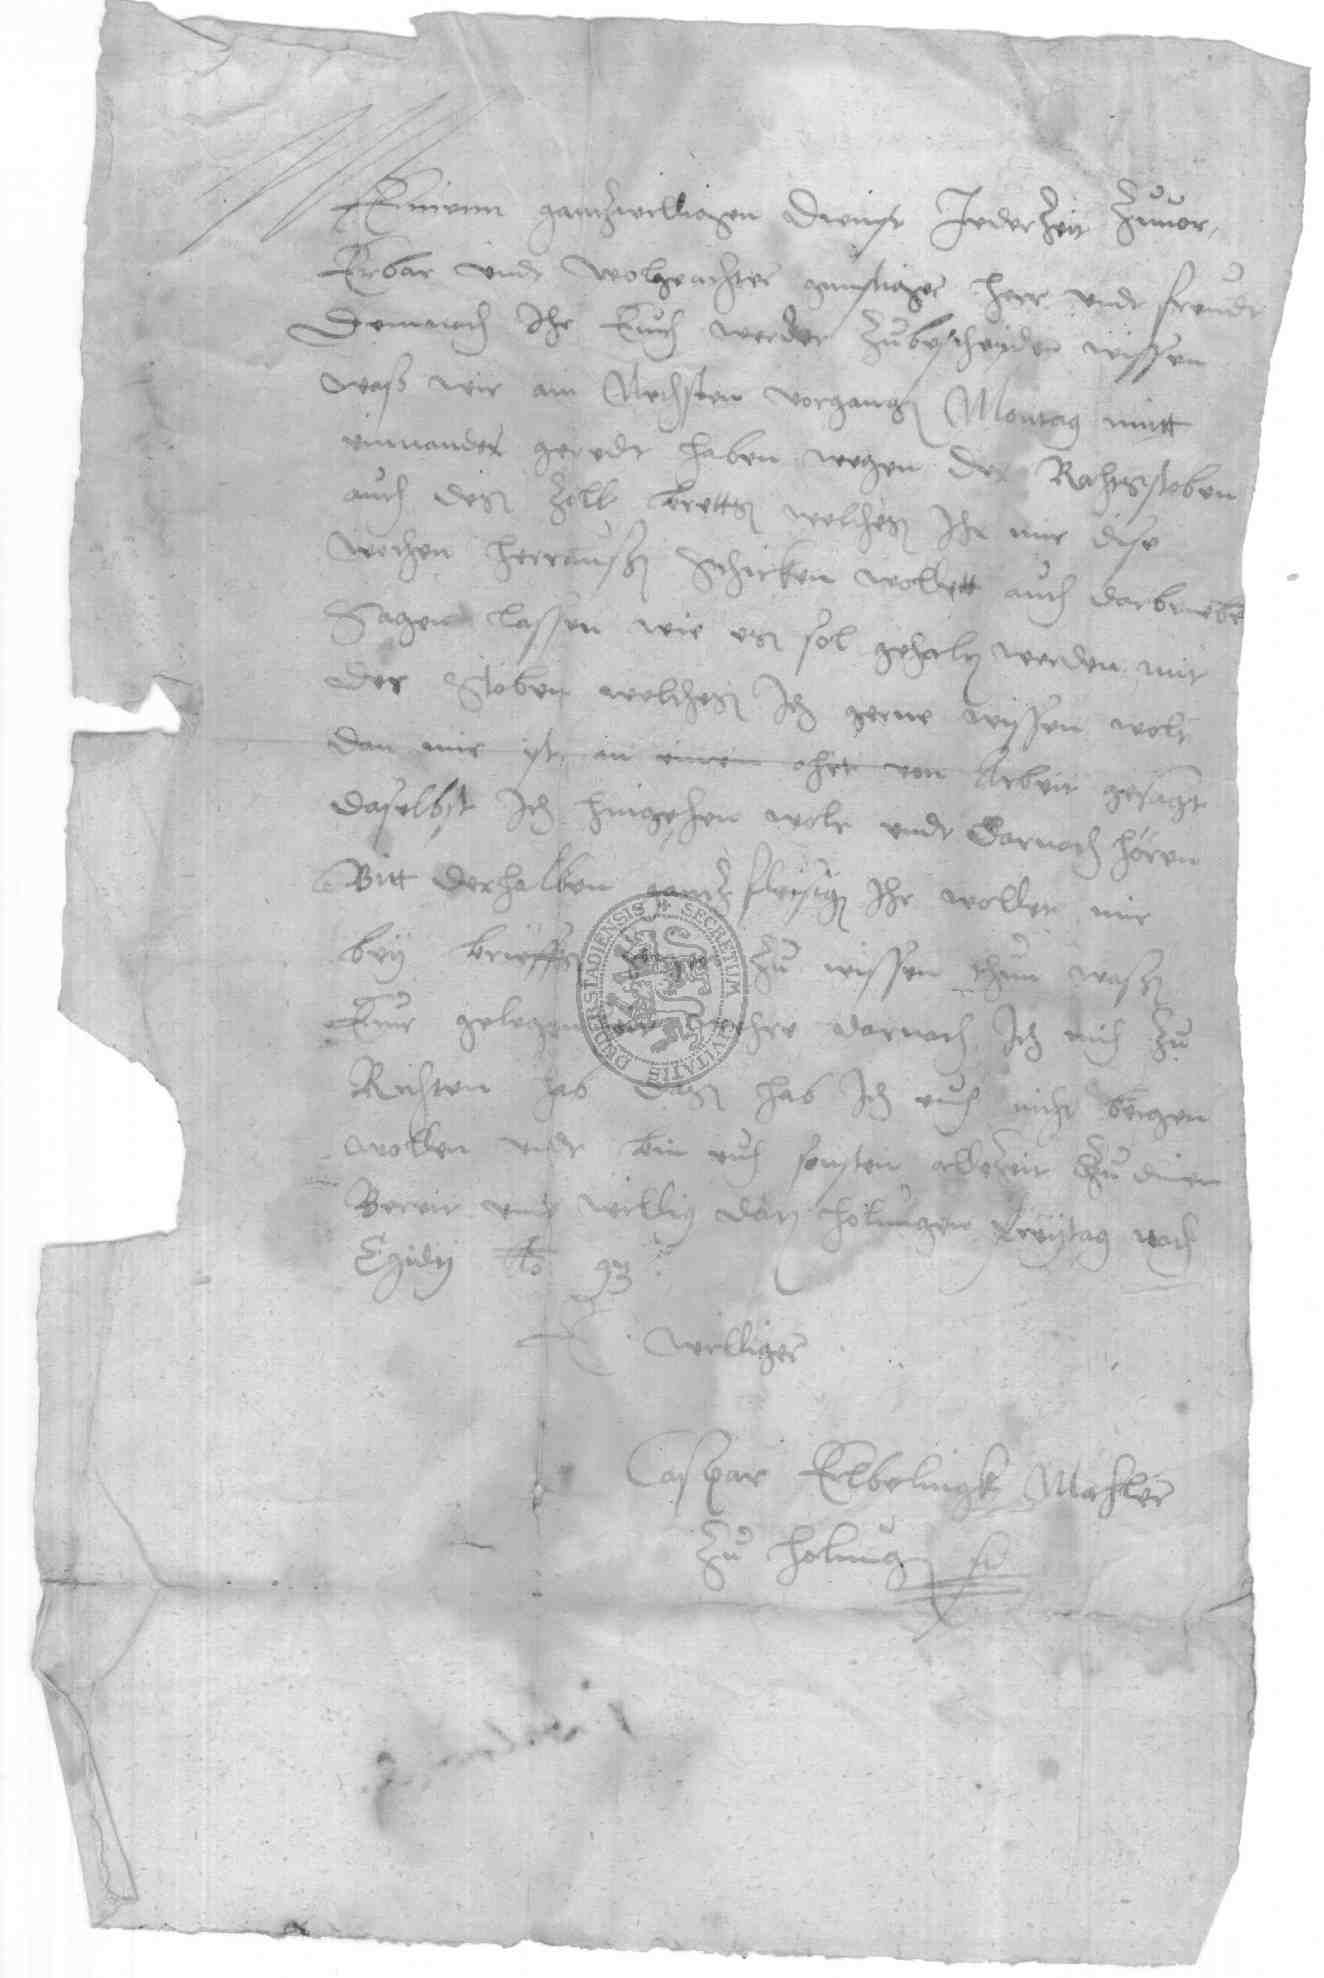 Meinenn gantzwilligen Dienst Jederzeit Zuuor,
Erbar undt wolgeachter gunstiger herr undt freundt
Demnach Ihr Euch werdet Zubescheyden wissen
waß wir am Nechsten vorgangen Montag mitt
einnander geredt haben wegen der Rahtsstoben
auch deß Zoll brettß welcheß Ihr mir dise
wochen herrauß Schicken wollett auch darbenebe
Sagen lassen wie eß sol gehalten werden mit
der Stoben welcheß Ich gerne wyssen wolt
dan mir ist an einen ohrt von Arbeit gesagt
daselbst Ich hingehen wolt undt darnach hören
Bitt derhalben gantz fleysig Ihr wollet mir
bey brieffß Zu wissen thun waß
Eur gelegenheit wehre darnach Ich mich Zu
Richten hab daß hab Ich euch nicht bergen
wollen undt bin euch sonsten allezeit Zu dinen
Bereit undt willig Dat holungen Freytag nach
Egidy Ao 93
E williger
Caspar Elbelingk Mahler
Zu holung
SECRETUM CIVITATIS DUDERSTADIENSIS